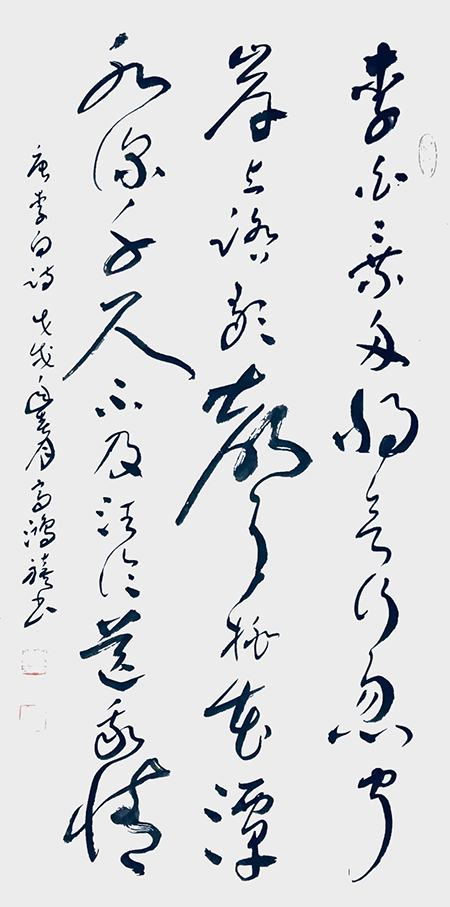 李白乘舟将欲行忽闻
岸上踏歌声桃花潭
水深千尺不及汪伦送我情
唐李白诗 戊戌年春月 高鸿书